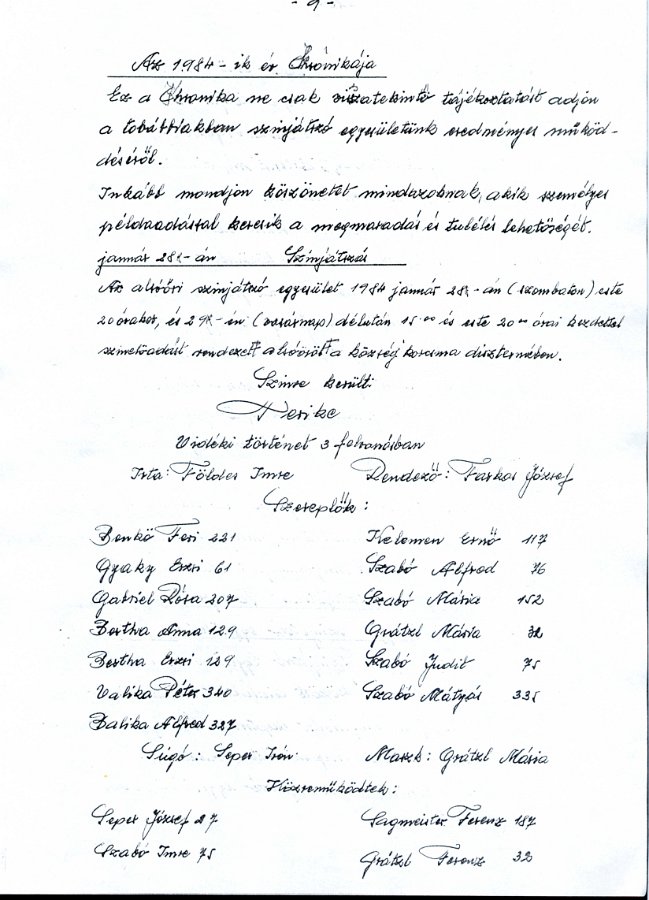 - 9 -
Az 1984-ik év Chrónikája
Ez a Chronika ne csak visszatekintő tájékoztatást adjon
a továbbiakban szinjátszó egyesületünk eredményes működ-
déséről.
Inkább mondjon köszönetet mindazoknak, akik személyes
példaadással keresik a megmaradás és tulélés lehetőségét.
január 28.-án Szinjátszás
Az alsóőri szinjátszó egyesület 1984 január 28.-án (szombaton) este
20 órakor, és 29.-én (vasárnap) délután 15 00 és este 20 00 órai kezdettel
szinielőadást rendezett alsóőrött a községi korcsma disztermében.
Szinre került:
Terike
Vidéki történet 3 felvonásban
Irta: Földes Imre Rendező: Farkas József
Szereplők:
Benkő Feri 221 Kelemen Ernő 117
Gyaky Erzsi 61 Szabó Alfred 76
Gabriel Róza 207 Szabó Mária 152
Bertha Anna 129 Grátzl Mária 32
Bertha Erzsi 129 Szabó Judit 75
Valika Péter 340 Szabó Mátyás 335
Balika Alfred 327
Súgó: Seper Irén Maszk: Grátzl Mária
Közreműködtek:
Seper József 27 Sagmeister Ferenz 187
Szabó Imre 75 Grátzl Ferenz 32